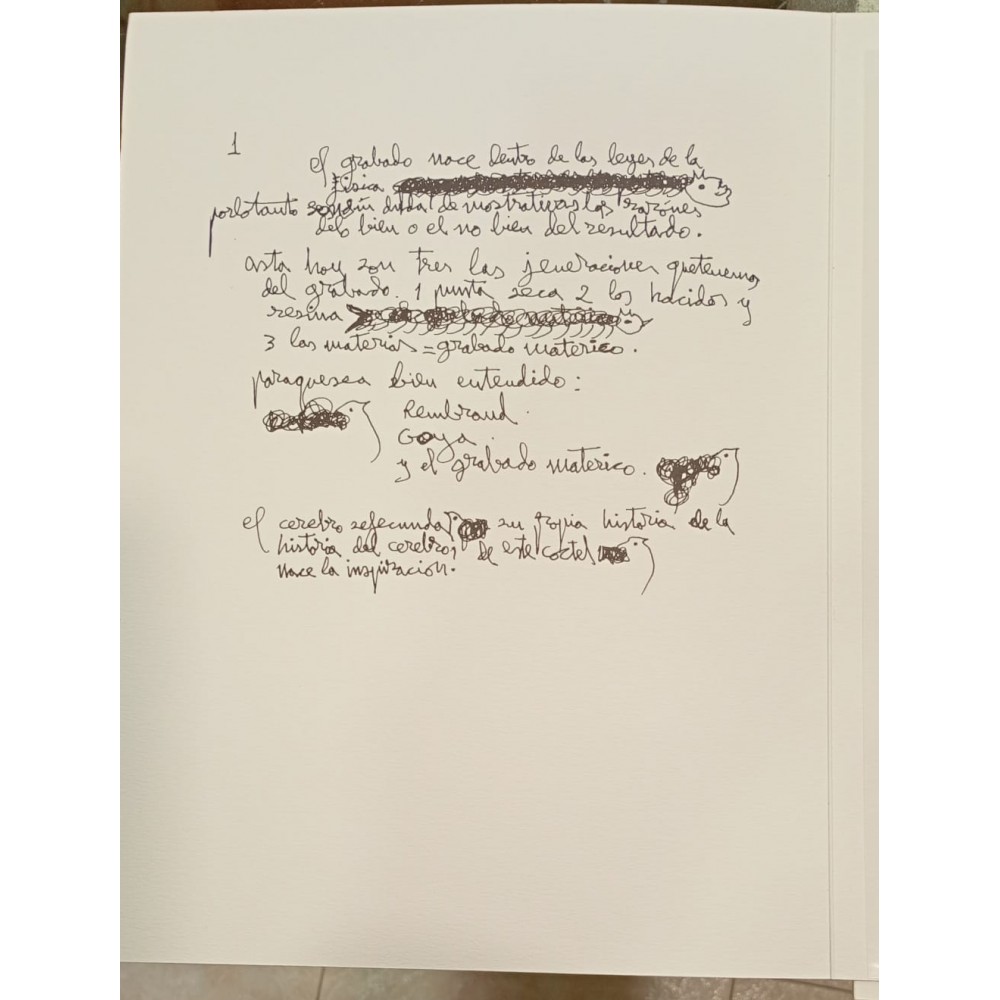 1
el grabado nace dentro de las leyes de la
fisica
porlotanto son sin duda demostrativas las razónes
delo bien o el no bien del resultado.
asta hoy son tres las jeneraciones quetenemos
del grabado. 1 punta seca 2 los hacidos y
resina
3 las materias = grabado materico.
paraquesea bien entendido:
Rembrand.
Goya.
y el grabado materico.
el cerebro sefecunda su propia historia de la
historia del cerebro, de este coctel
nace la inspiracion.